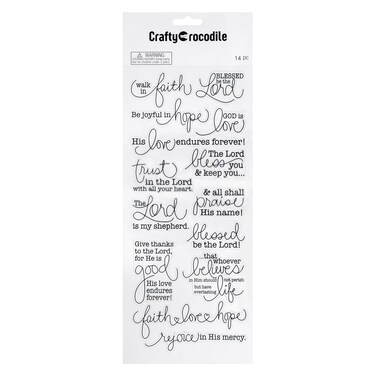 Crafty Crocodile
WARNING:
14 pc
walk in faith
BLESSED be the Lord
Be joyful in hope
GOD is love
His love endures forever!
The Lord bless you & keep you...
trust in the Lord
with all your heart.
& all shall praise His name!
The Lord is my shepherd.
blessed be the Lord!
Give thanks
to the Lord,
for He is
good
His love
endures
forever!
that whoever
believes
in Him should not perish
but have everlasting life
faith love hope
rejoice in His mercy.